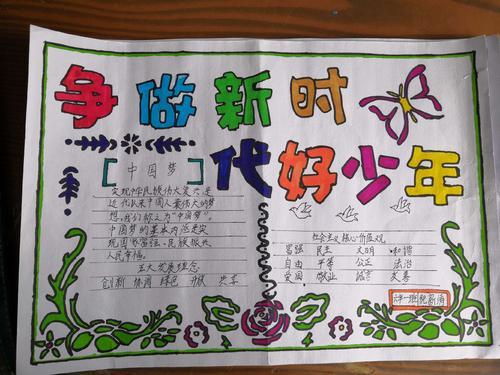 争做新时
代好少年
中国梦
实现中华民族伟大复兴是
近代以来中国人最伟大的梦
想,我们称之为“中国梦”。
中国梦的基本内涵是实
现国家富强、民族振兴
人民幸福。
五大发展理念
创新 协调 绿色 开放 共享
社会主义核心价值观
富强 民主 文明 和谐
自由 平等 公正 法治
爱国 敬业 诚信 友善
六年一班